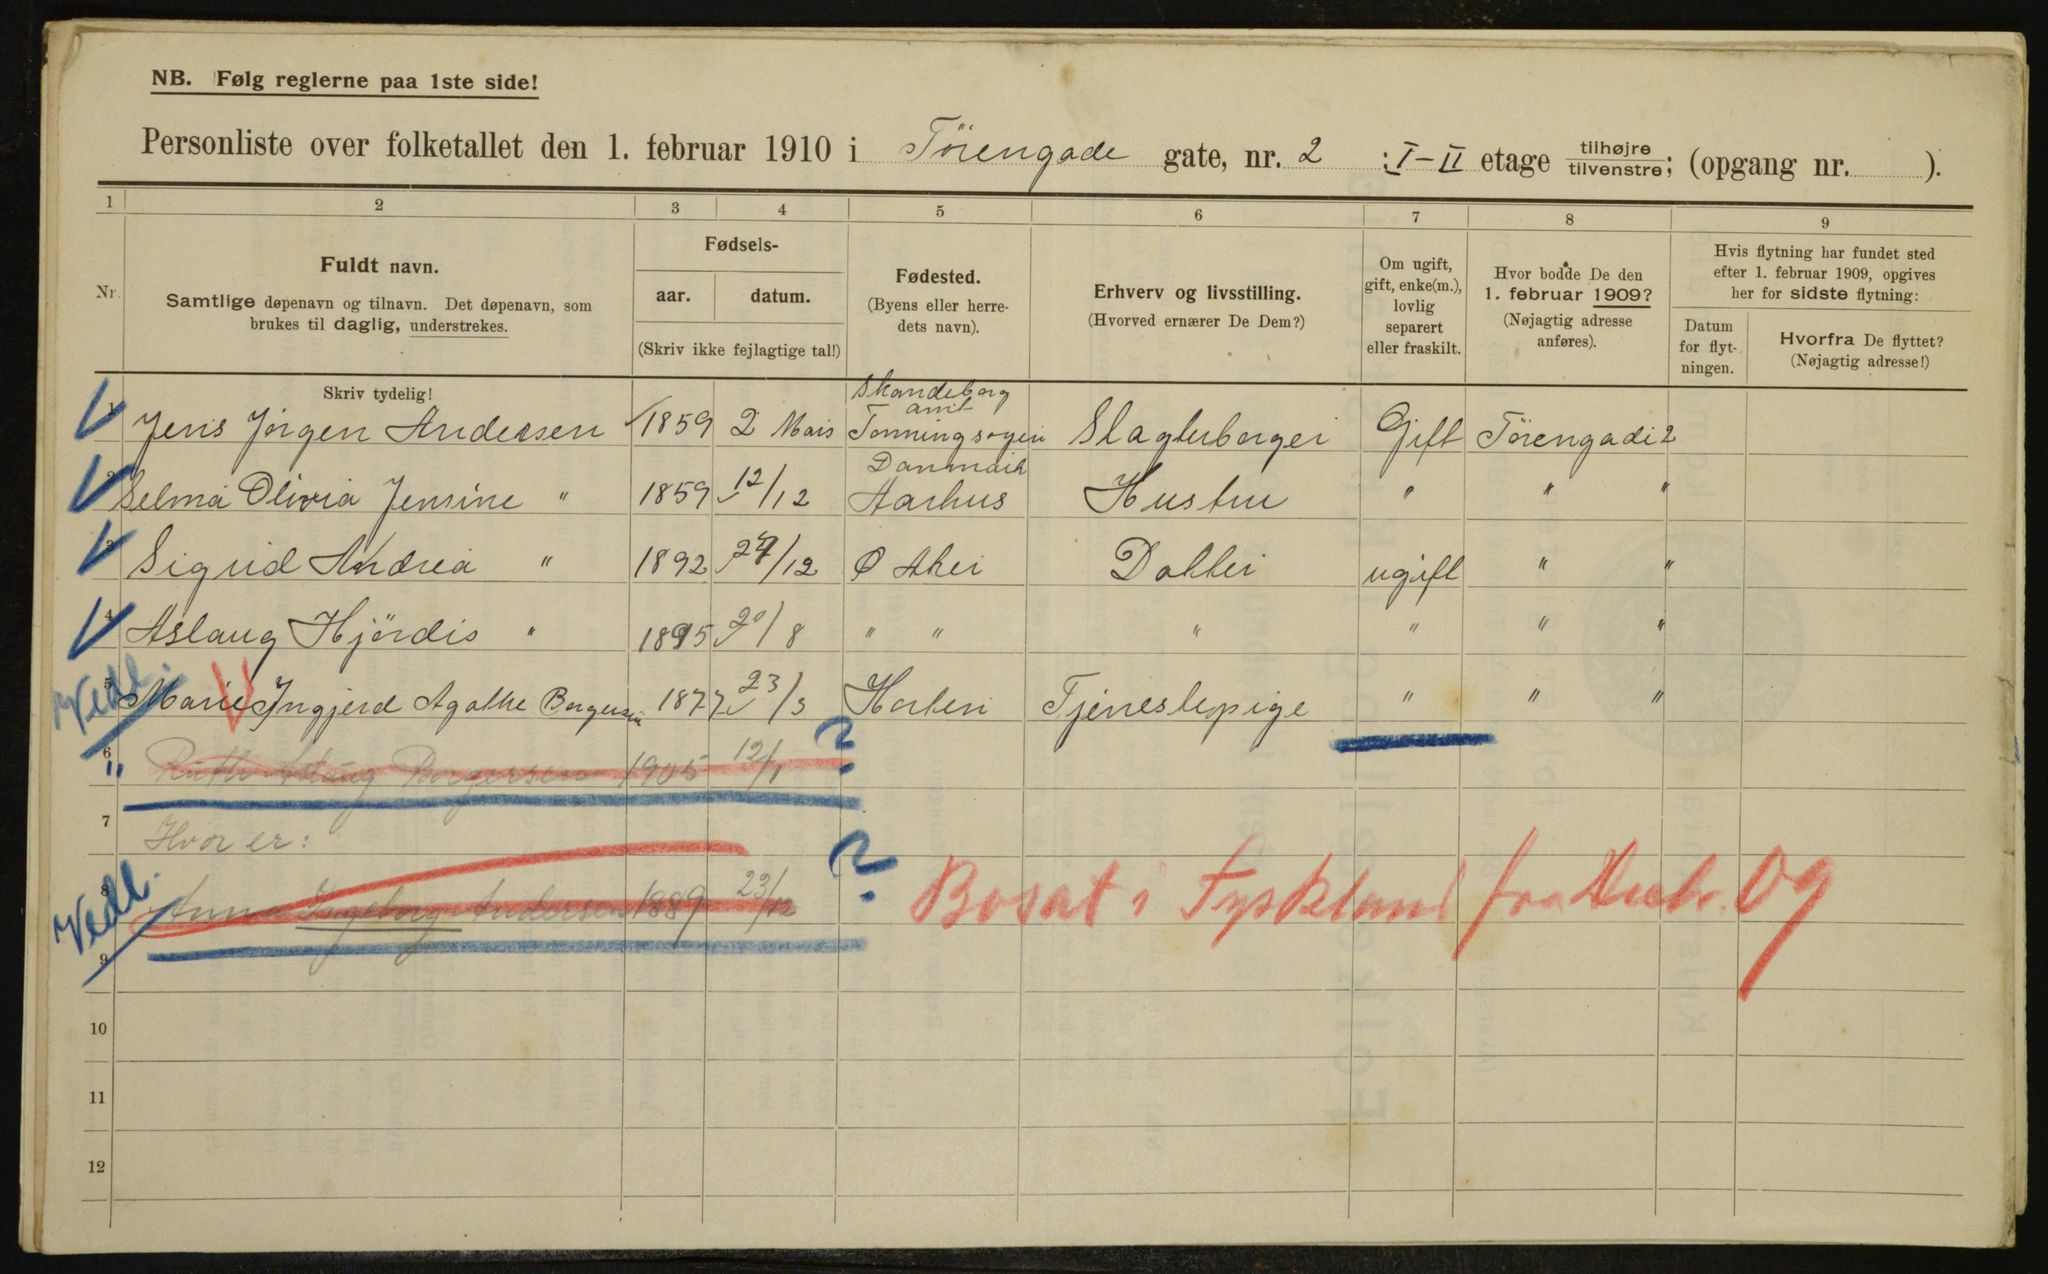 NB. Følg reglerne paa 1ste side!
Personliste over folketallet den 1. februar 1910 i Törengade gate, nr. 2 : I-II etage tilhøjre tilvenstre; (opgang nr. ).
1 2 3 4 5 6 7 8 9
Nr.
Fuldt navn.
Samtlige døpenavn og tilnavn. Det døpenavn, som
brukes til daglig, understrekes.
Fødsels-
aar. datum.
(Skriv ikke fejlagtige tal!)
Fødested.
(Byens eller herre-
dets navn).
Erhverv og livsstilling.
(Hvorved ernærer De Dem?)
Om ugift,
gift, enke(m.),
lovlig
separert
eller fraskilt.
Hvor bodde De den
1. februar 1909?
(Nøjagtig adresse
anføres).
Hvis flytning har fundet sted
efter 1. februar 1909, opgives
her for sidste flytning:
Datum
for flyt-
ningen.
Hvorfra De flyttet?
(Nøjagtig adresse!)
Skriv tydelig!
Skandeborg
amt
1 Jens Jörgen Andersen 1859 2 Mars Tonning sogn Slagterborger Gift Törengade 2
Danmark
2 Selma Olivia Jensine " 1859 12/12 Aarhus Hustru " " "
3 Sigrid Andrea " 1892 /12 Ø Aker Datter ugift " "
4 Aslaug Hjördis " 1895 20/8 " " " " " "
Vedl.
5 Marie Ingjerd Agathe Borgersen 1877 23/3 Horten Tjenestepige " " "
6 " Ruth Aslaug Borgersen 1905 12/1 ?
7 Hvor er:
Vedl.
8 Anna Ingeborg Andersen 1889 23/12 ? Bosat i Tyskland fra 09
9
10
11
12